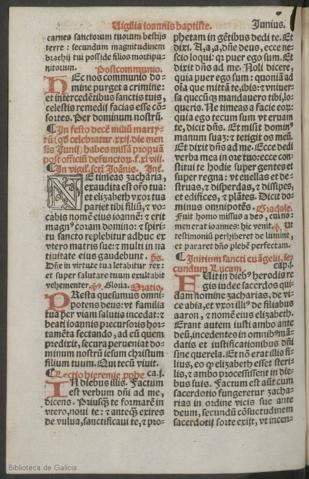 Vigilia ioannis baptiste. Junius.
carnes sanctorum tuorum bestijs
terre: secundum magnitudinem
brachij tui posside filios mortipi-
Postcommunio.
Hec nos communio do-
mine purget a crimine:
et intercedētibus sanctis tuis,
celestis remedij faciat esse cō-
sortes. Per dominum nostrū.
In festo decē miliū marty-
rū: qđ celebratur .xxij. die men
sis Junij: habes missā propriā
post officiū defunctorū. f.
In vigiľ. scti Joānis.
NE timeas zacharia,
exaudita est oīo tua:
et elizabeth vxor tua
pariet tibi filiū, et vo-
cabis nomē eius ioannē: et erit
magn⁹ coram domino: et spiri-
tu sancto replebitur adhuc ex
vtero matris sue: et multi in na
tiuitate eius gaudebunt. ps.
Dñe in virtute tua letabitur rex:
et super salutare tuum exultabit
vehementer. Gloria. Oratio.
PResta quesumus omni-
potens deus: vt familia
tua per viam salutis incedat: et
beati ioannis precursoris hor-
tamēta sectando, ad eū quem
predixit, secura perueniat do-
minum nostrū iesum christum
filium tuum. Qui tecū viuit.
Lectio hieremie pphe ca.j.
IN diebus illis. Factum
est verbum dñi ad me,
dicens. Priusq̄ te formarē in
vtero, noui te: et anteq̄ exires
de vulua, sanctificaui te, et pro-
phetam in gētibus dedi te. Et
dixi. A, a, a, dñe deus, ecce ne-
scio loqui: qr puer ego sum. Et
dixit dñs ad me. Noli dicere,
quia puer ego sum: quoniā ad
oīa que mittā te, ibis: et vniuer-
sa quecūq̄ mandauero tibi, lo-
queris. Ne timeas a facie eorū:
quia ego tecum sum vt eruam
te, dicit dñs. Et misit domin⁹
manum suā: et tetigit os meū.
Et dixit dñs ad me. Ecce dedi
verba mea in ore tuo: ecce con-
stitui te hodie super gentes et
super regna: vt euellas et de-
struas, et disperdas, et dissipes,
et edifices, et plātes. Dicit do-
minus omnipotēs. Graduale.
Fuit homo missus a deo, cui no-
men erat ioannes: hic venit. Ut
testimoniū perhiberet de lumine,
et pararet dño plebē perfectam.
Initium sancti euāgelij, se-
cundum Lucam. cap.j.
FUit in dieb⁹ herodis re-
gis iudee sacerdos qui-
dam nomine zacharias, de vi-
ce abia, et vxor illi⁹ de filiabus
aaron, et nomē eius elizabeth.
Erant autem iusti ambo ante
deū, incedentes in omnib⁹ mā-
datis et iustificationibus dñi
sine querela. Et nō erat illis fi-
lius, eo qr elizabeth esset steri-
lis, et ambo processissent in die-
bus suis. Factum est aūt cum
sacerdotio fungeretur zacha-
rias in ordine vicis sue ante
deum, secundū cōsuetudinem
sacerdotij sorte exijt, vt incen-
Biblioteca de Galicia